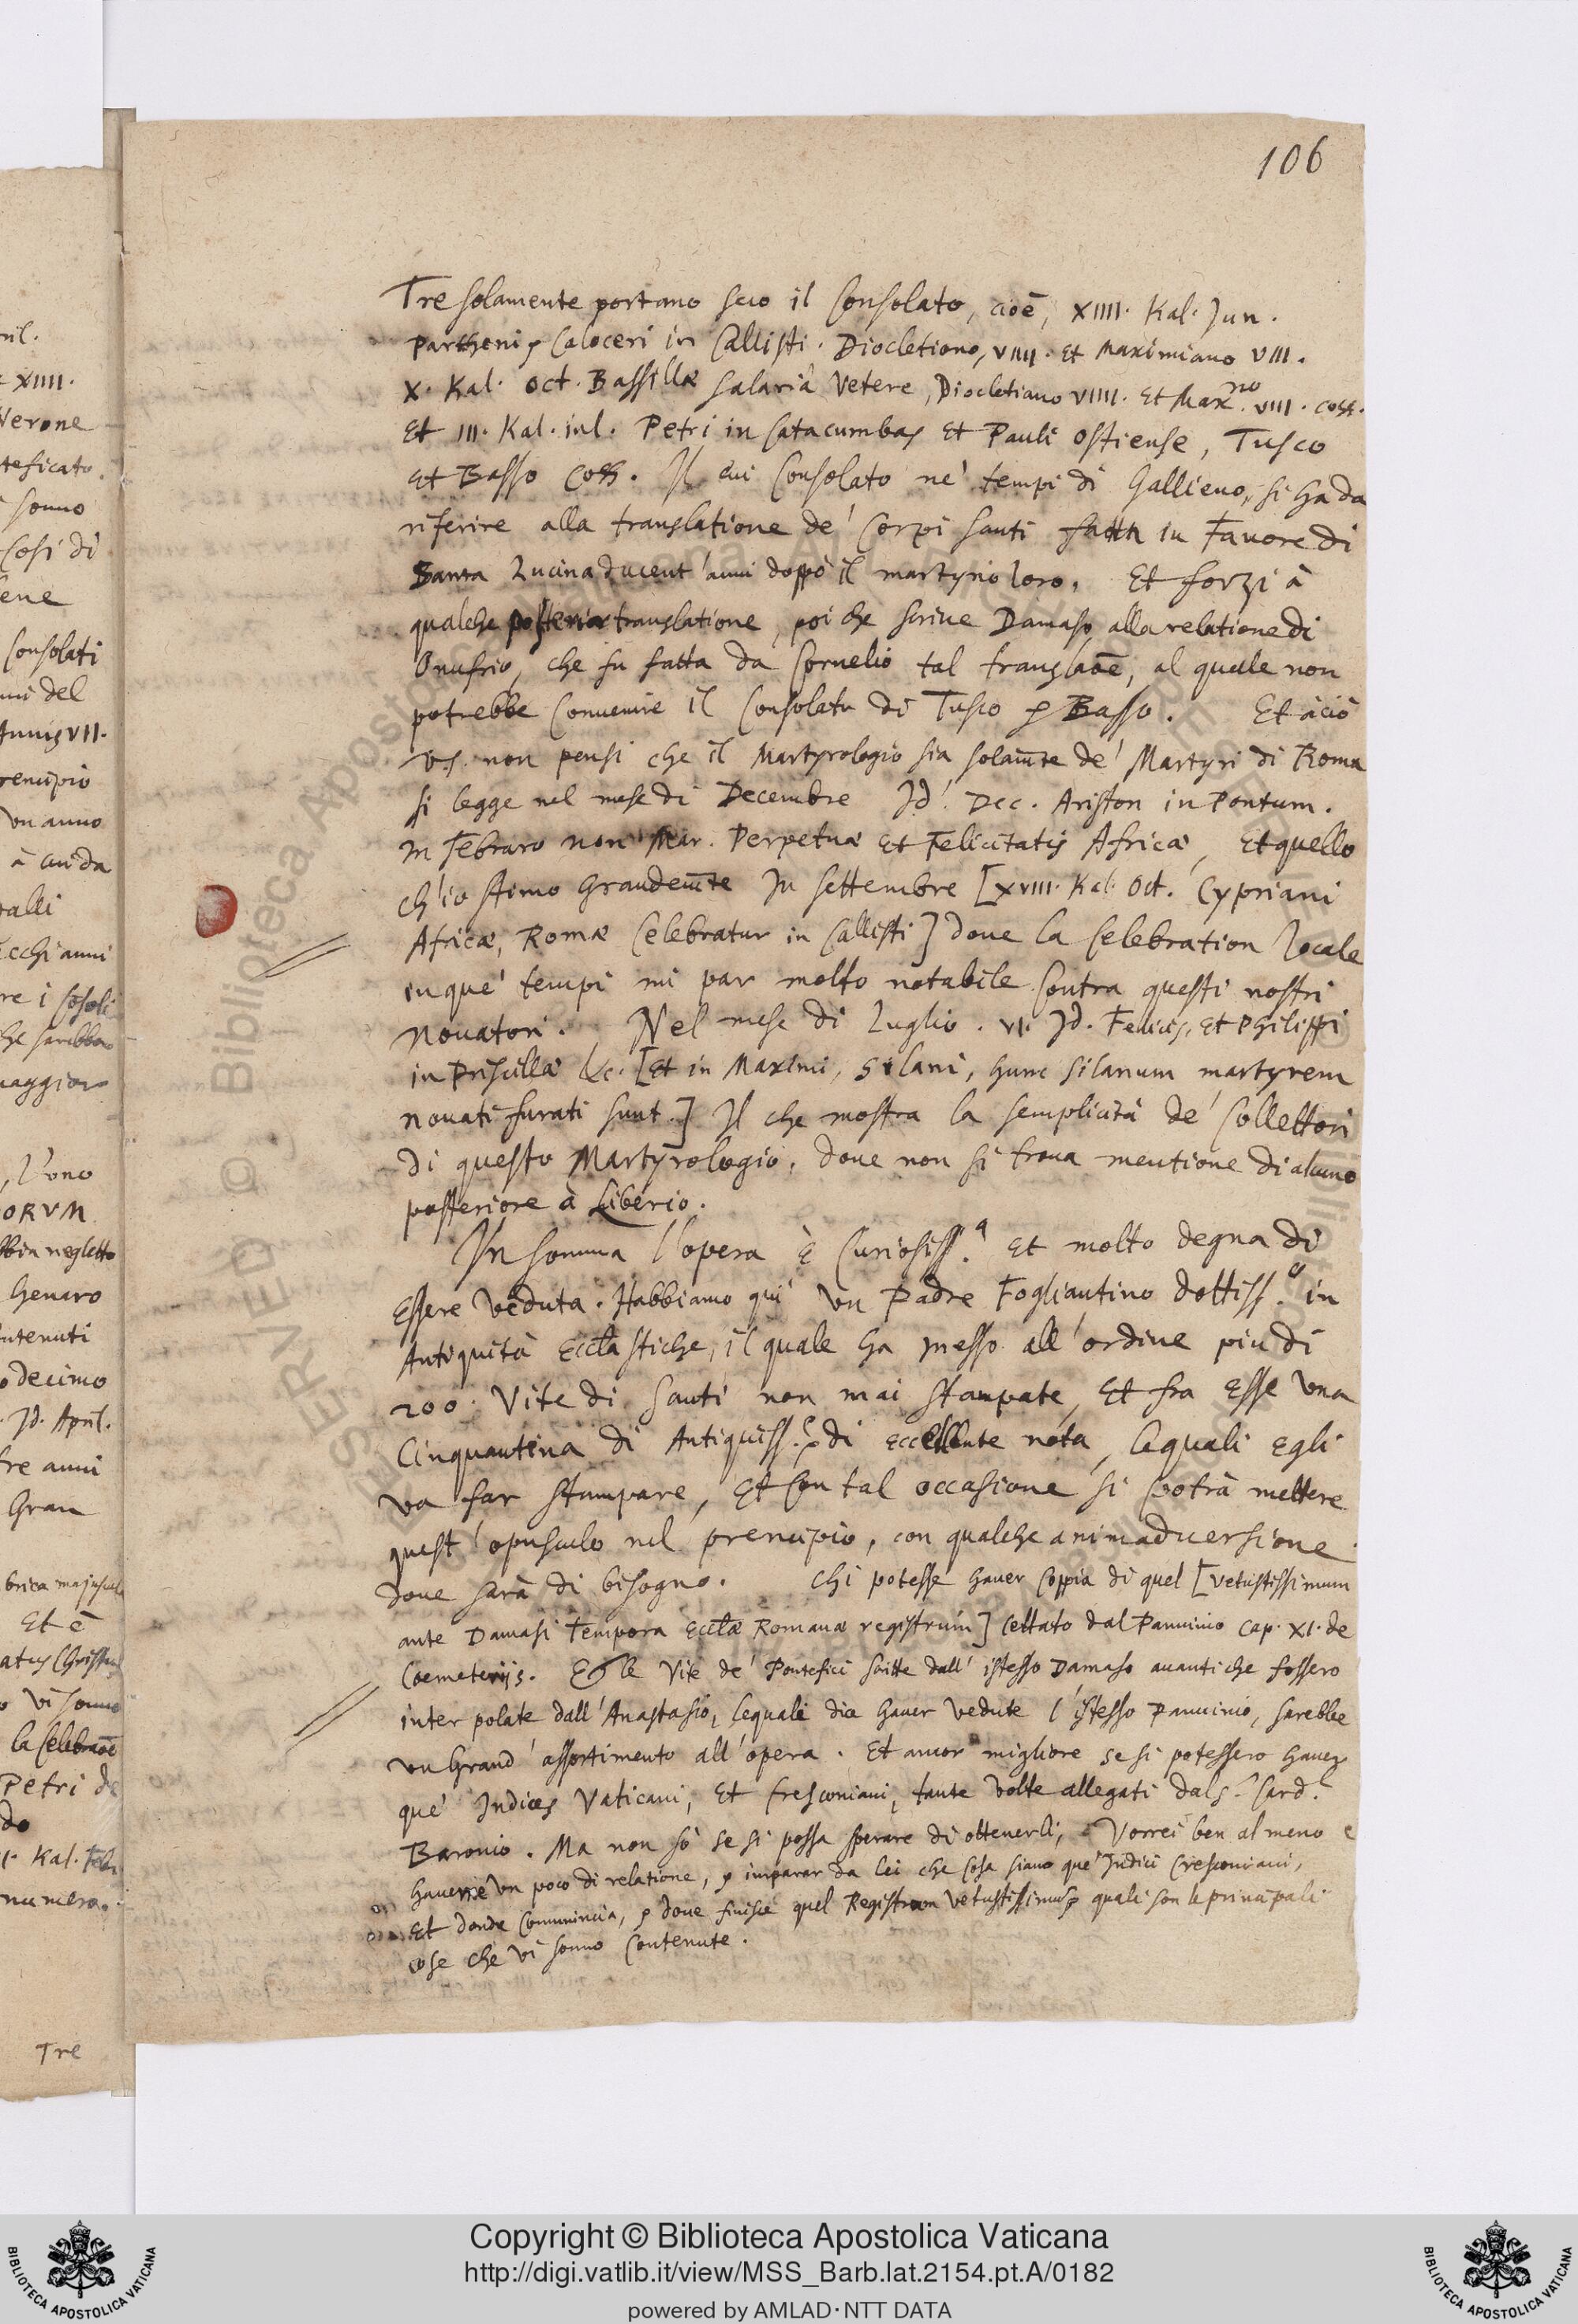 106
Tre solamente portano seco il Consolato, cioè, XIIII. Kal. Jun.
Partheni & Caloceri in Callisti. Diocletiano, VIIII. Et Maximiano VIII.
X. Kal. Oct. Bassillæ Salaria Vetere, Diocletiano VIIII. Et Max.no VIII. coss.
Et III. Kal. iul. Petri in Catacumbas Et Pauli Ostiense, Tusco
Et Basso Coss. Il cui Consolato ne' tempi di Gallieno, si ha da
riferire alla translatione de' Corpi santi fatta in Favore di
Santa Lucina ducent'anni doppò il martyrio loro. Et forzi à
qualche posterior translatione, poi che scriue Damaso alla relatione di
Onufrio, che fu fatta da Cornelio tal translaōe, al quale non
potrebbe Conuenire il Consolato di Tusco & Basso. Et àciò
V.S. non pensi che il Martyrologio sia solam̄te de' Martyri di Roma
si legge nel mese di Decembre Jd. Dec. Ariston in Pontum.
In Febraro non. Mar. Perpetuæ Et Felicitatis Africæ, Et quello
ch'io stimo Grandem̄te In Settembre [XVIII. Kal. Oct. Cypriani
Africæ, Romæ Celebratur in Callisti] doue la Celebration locale
in que' tempi mi par molto notabile Contra questi nostri
Nouatori. Nel mese di Luglio. VI. Jd. Felicis, Et Philippi
in Priscillæ &c. [Et in Maximi, Silani, hunc Silanum martyrem
nouati furati sunt.] Il che mostra la semplicità de' Collettori
di questo Martyrologio, doue non si troua mentione di alcuno
posteriore à Liberio.
In somma l'opera è Curiosiss.a Et molto degna di
Essere Veduta. Habbiamo qui Vn Padre Fogliantino dottiss.o in
Antiquità Eccl̄astiche, il quale ha messo all'ordine piu di
200. Vite di Santi non mai stampate, Et fra Esse Vna
Cinquantina di Antiquiss.e & di eccellente nota, lequali Egli
va far stampare, Et con tal occasione si potrà mettere
quest'opusculo nel prencipio, con qualche animaduersione
doue sarà di bisogno. Chi potesse hauer Coppia di quel [Vetustissimum
ante Damasi Tempora Eccl̄æ Romanæ registrum] Cettato dal Panuinio Cap. XI. de
Cœmeteriis. Et le Vite de' Pontefici scritte dall'istesso Damaso auanti che fossero
interpolate dall'Anastasio, lequali dice hauer Vedute l'istesso Panuinio, sarebbe
vn Grand'assortimento all'opera. Et ancor migliore se si potessero hauer
que' Indices Vaticani, Et Cresconiani, tante Volte allegati dal S.r Card.l
Baronio. Ma non sò se si possa sperare di ottenerli, Vorrei ben al meno
hauerne Vn poco di relatione, & imparar da lei che cosa siano que' Indici Cresconiani,
Et donde Comminicia, & doue finisce quel Registrum Vetustissimum & quali son le principali
cose che vi sonno Contenute.
Tre
Copyright © Biblioteca Apostolica Vaticana
http://digi.vatlib.it/view/MSS_Barb.lat.2154.pt.A/0182
powered by AMLAD·NTT DATA
BIBLIOTECA APOSTOLICA VATICANA
BIBLIOTECA APOSTOLICA VATICANA